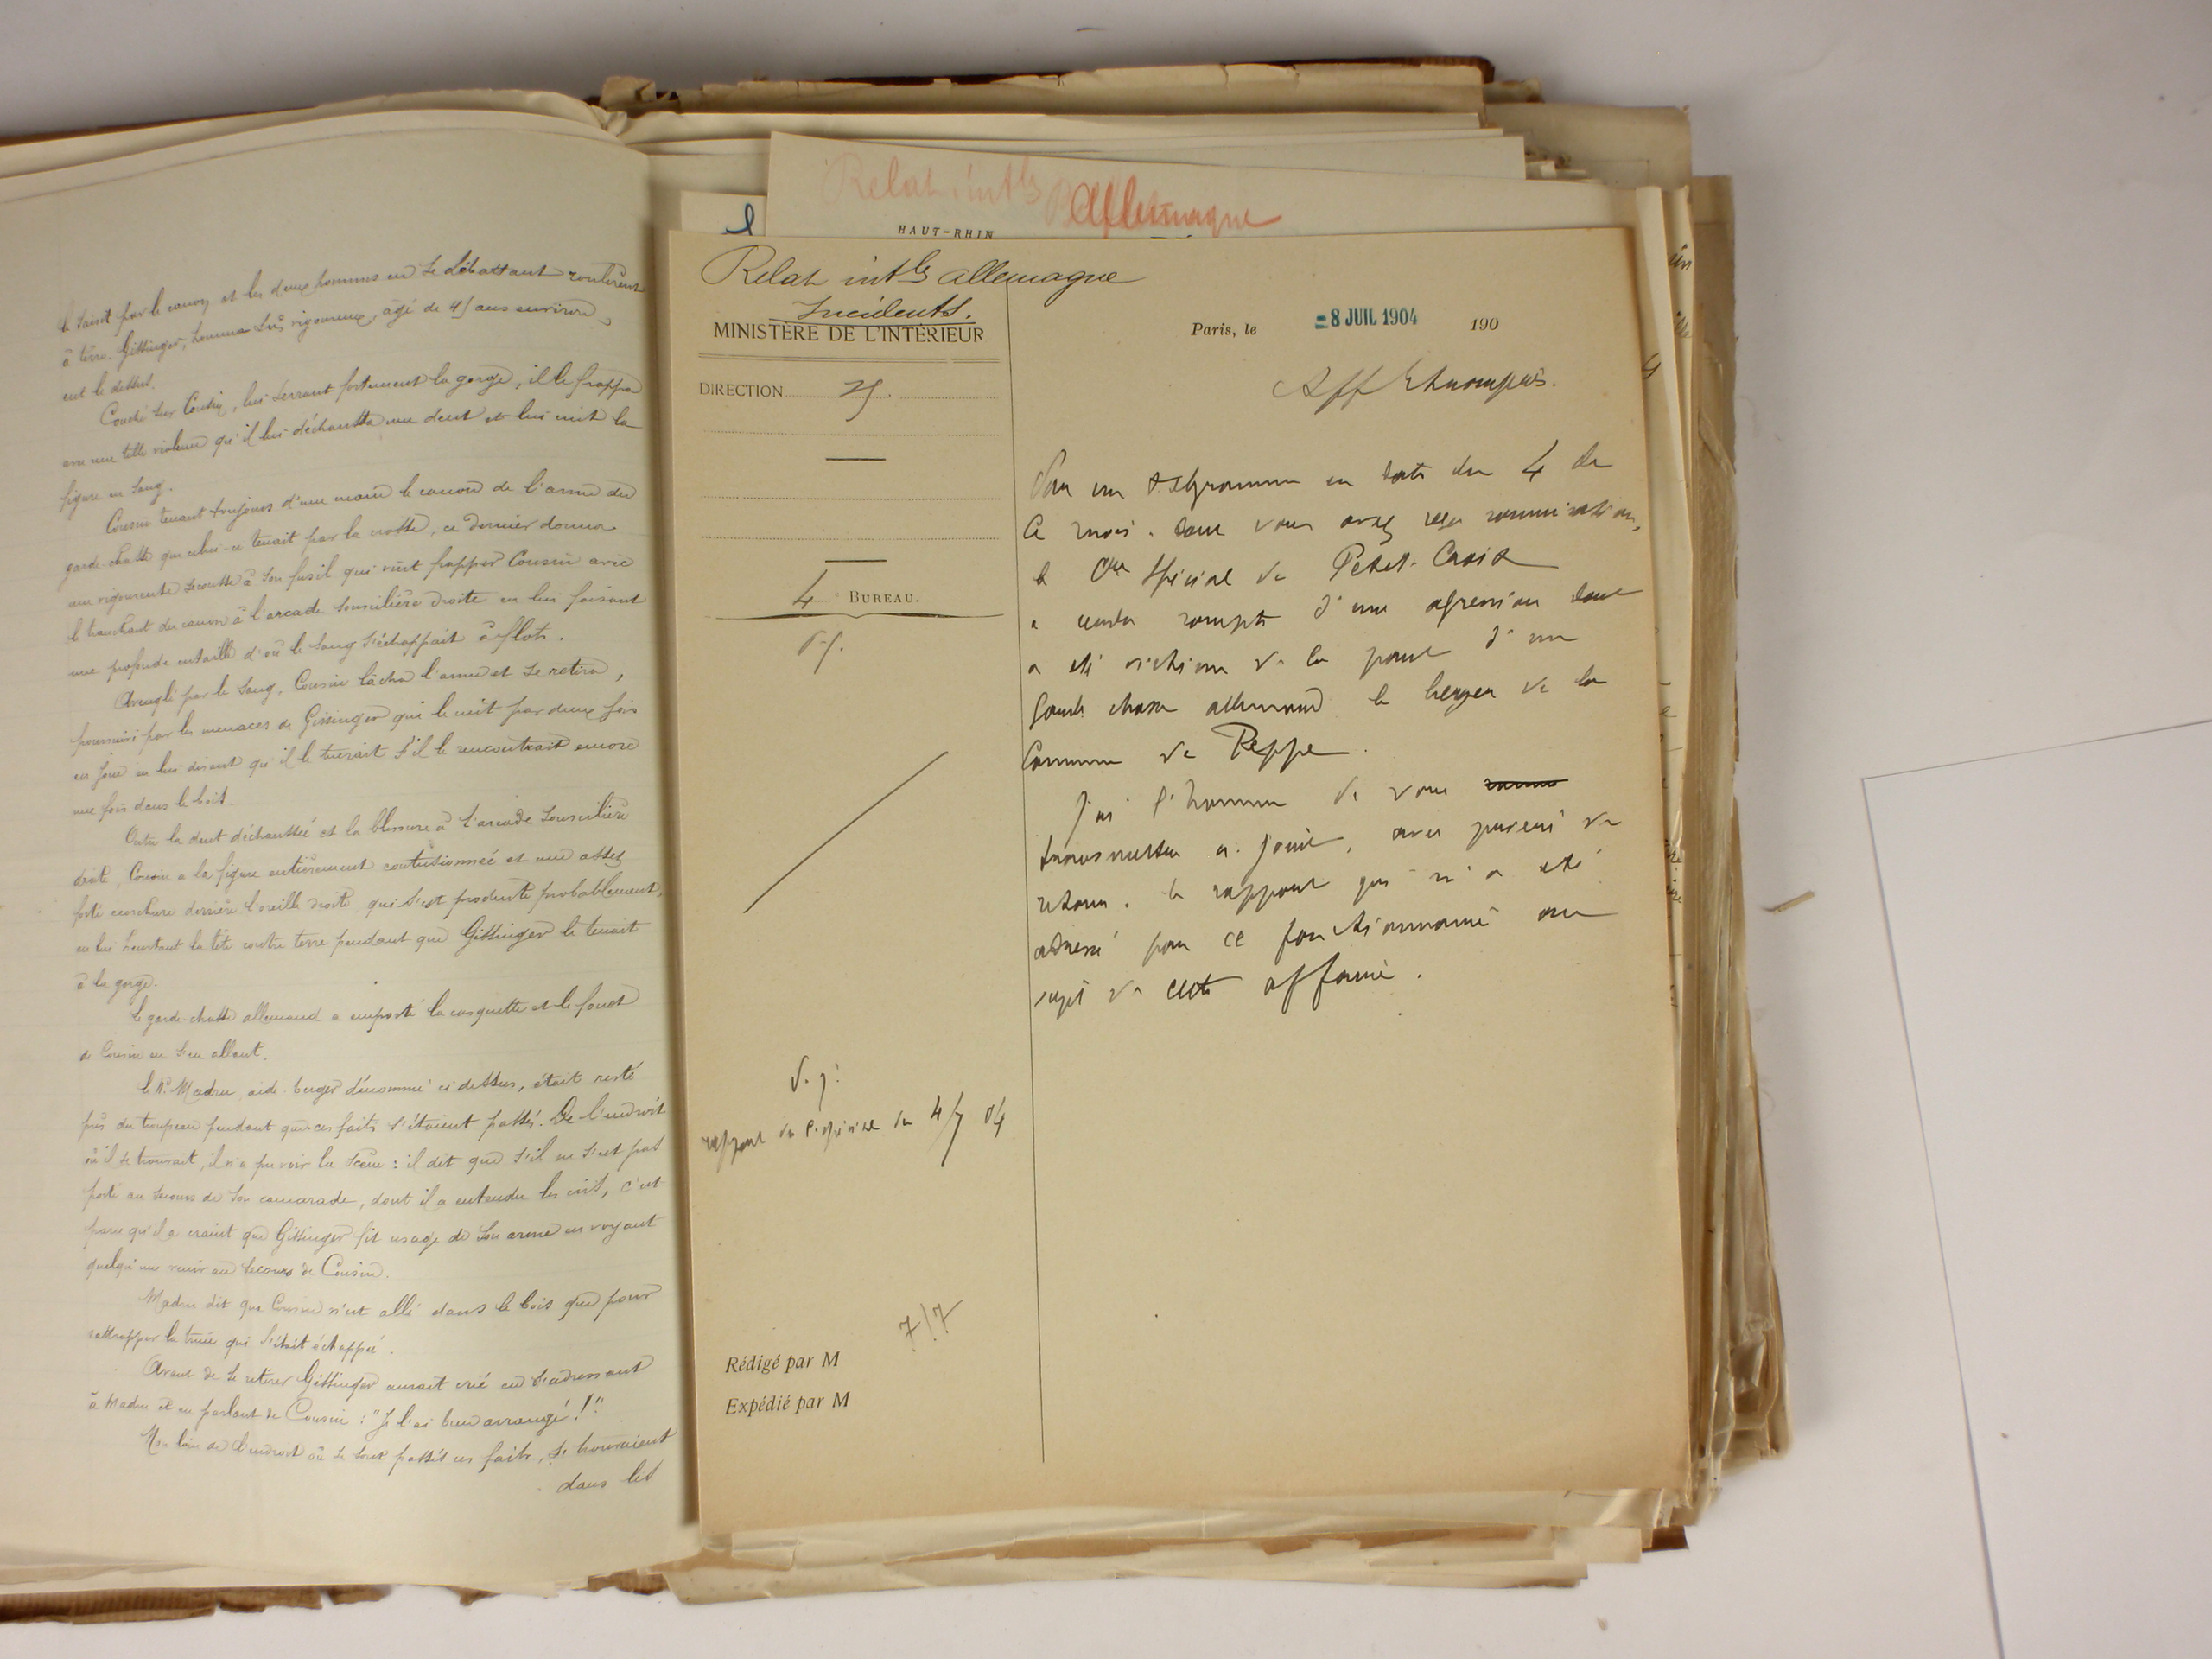 le saisit par le canon et les deux hommes en se débattant roulèrent
à terre. Gissinger, homme très vigoureux, âgé de 45 ans environ,
eut le dessus.
Couché sur Cousin, lui serrant fortement la gorge, il le frappa
avec une telle violence qu'il lui déchaussa une dent et lui mit la
figure en sang.
Cousin tenant toujours d'une main le canon de l'arme du
garde-chasse que celui-ci tenait par la crosse, ce dernier donna
une vigoureuse secousse à son fusil qui vint frapper Cousin avec
le tranchant du canon à l'arcade sourcilière droite en lui faisant
une profonde entaille d'où le sang s'échappait à flots.
Aveuglé par le sang, Cousin lâcha l'arme et se retira,
poursuivi par les menaces de Gissinger qui le mit par deux fois
en joue en lui disant qu'il le tuerait s'il le rencontrait encore
une fois dans le bois.
Outre la dent déchaussée et la blessure à l'arcade sourcilière
droite, Cousin a la figure entièrement contusionnée et une assez
forte écorchure derrière l'oreille droite, qui s'est produite probablement,
en lui heurtant la tête contre terre pendant que Gissinger le tenait
à la gorge.
Le garde-chasse allemand a emporté la casquette et le fouet
de Cousin en s'en allant.
Le Sr. Madru, aide-berger dénommé ci-dessus, était resté
près du troupeau pendant que ces faits s'étaient passés. De l'endroit
où il se trouvait, il n'a pu voir la scène : il dit que s'il ne s'est pas
porté au secours de son camarade, dont il a entendu les cris, c'est
parce qu'il a craint que Gissinger fit usage de son arme en voyant
quelqu'un venir au secours de Cousin.
Madru dit que Cousin n'est allé dans le bois que pour
rattrapper la truie qui s'était échappée.
Avant de se retirer Gissinger aurait crié en s'adressant
à Madru et en parlant de Cousin : "Je l'ai bien arrangé !"
Non loin de l'endroit où se sont passés ces faits, se trouvaient
dans les
Relat. intles Allemagne
HAUT-RHIN
Relat intles allemagne
Incidents.
MINISTÈRE DE L'INTÉRIEUR
DIRECTION
4 BUREAU.
Paris, le -8 JUIL 1904 190
Aff Etrangères.
Par un télégramme en date du 4 de
ce mois, dont vous avez reçu communication,
le Cre spécial de Petit-Croix
a rendu compte d'une agression dont
a été victime de la part d'un
garde chasse allemand le berger de la
Commune de Reppe.
J'ai l'honneur de vous
transmettre ci-joint, avec prière de
retour, le rapport qui m'a été
adressé par ce fonctionnaire au
sujet de cette affaire.
rapport du C. spécial du 4/7 04
7/7
Rédigé par M
Expédié par M